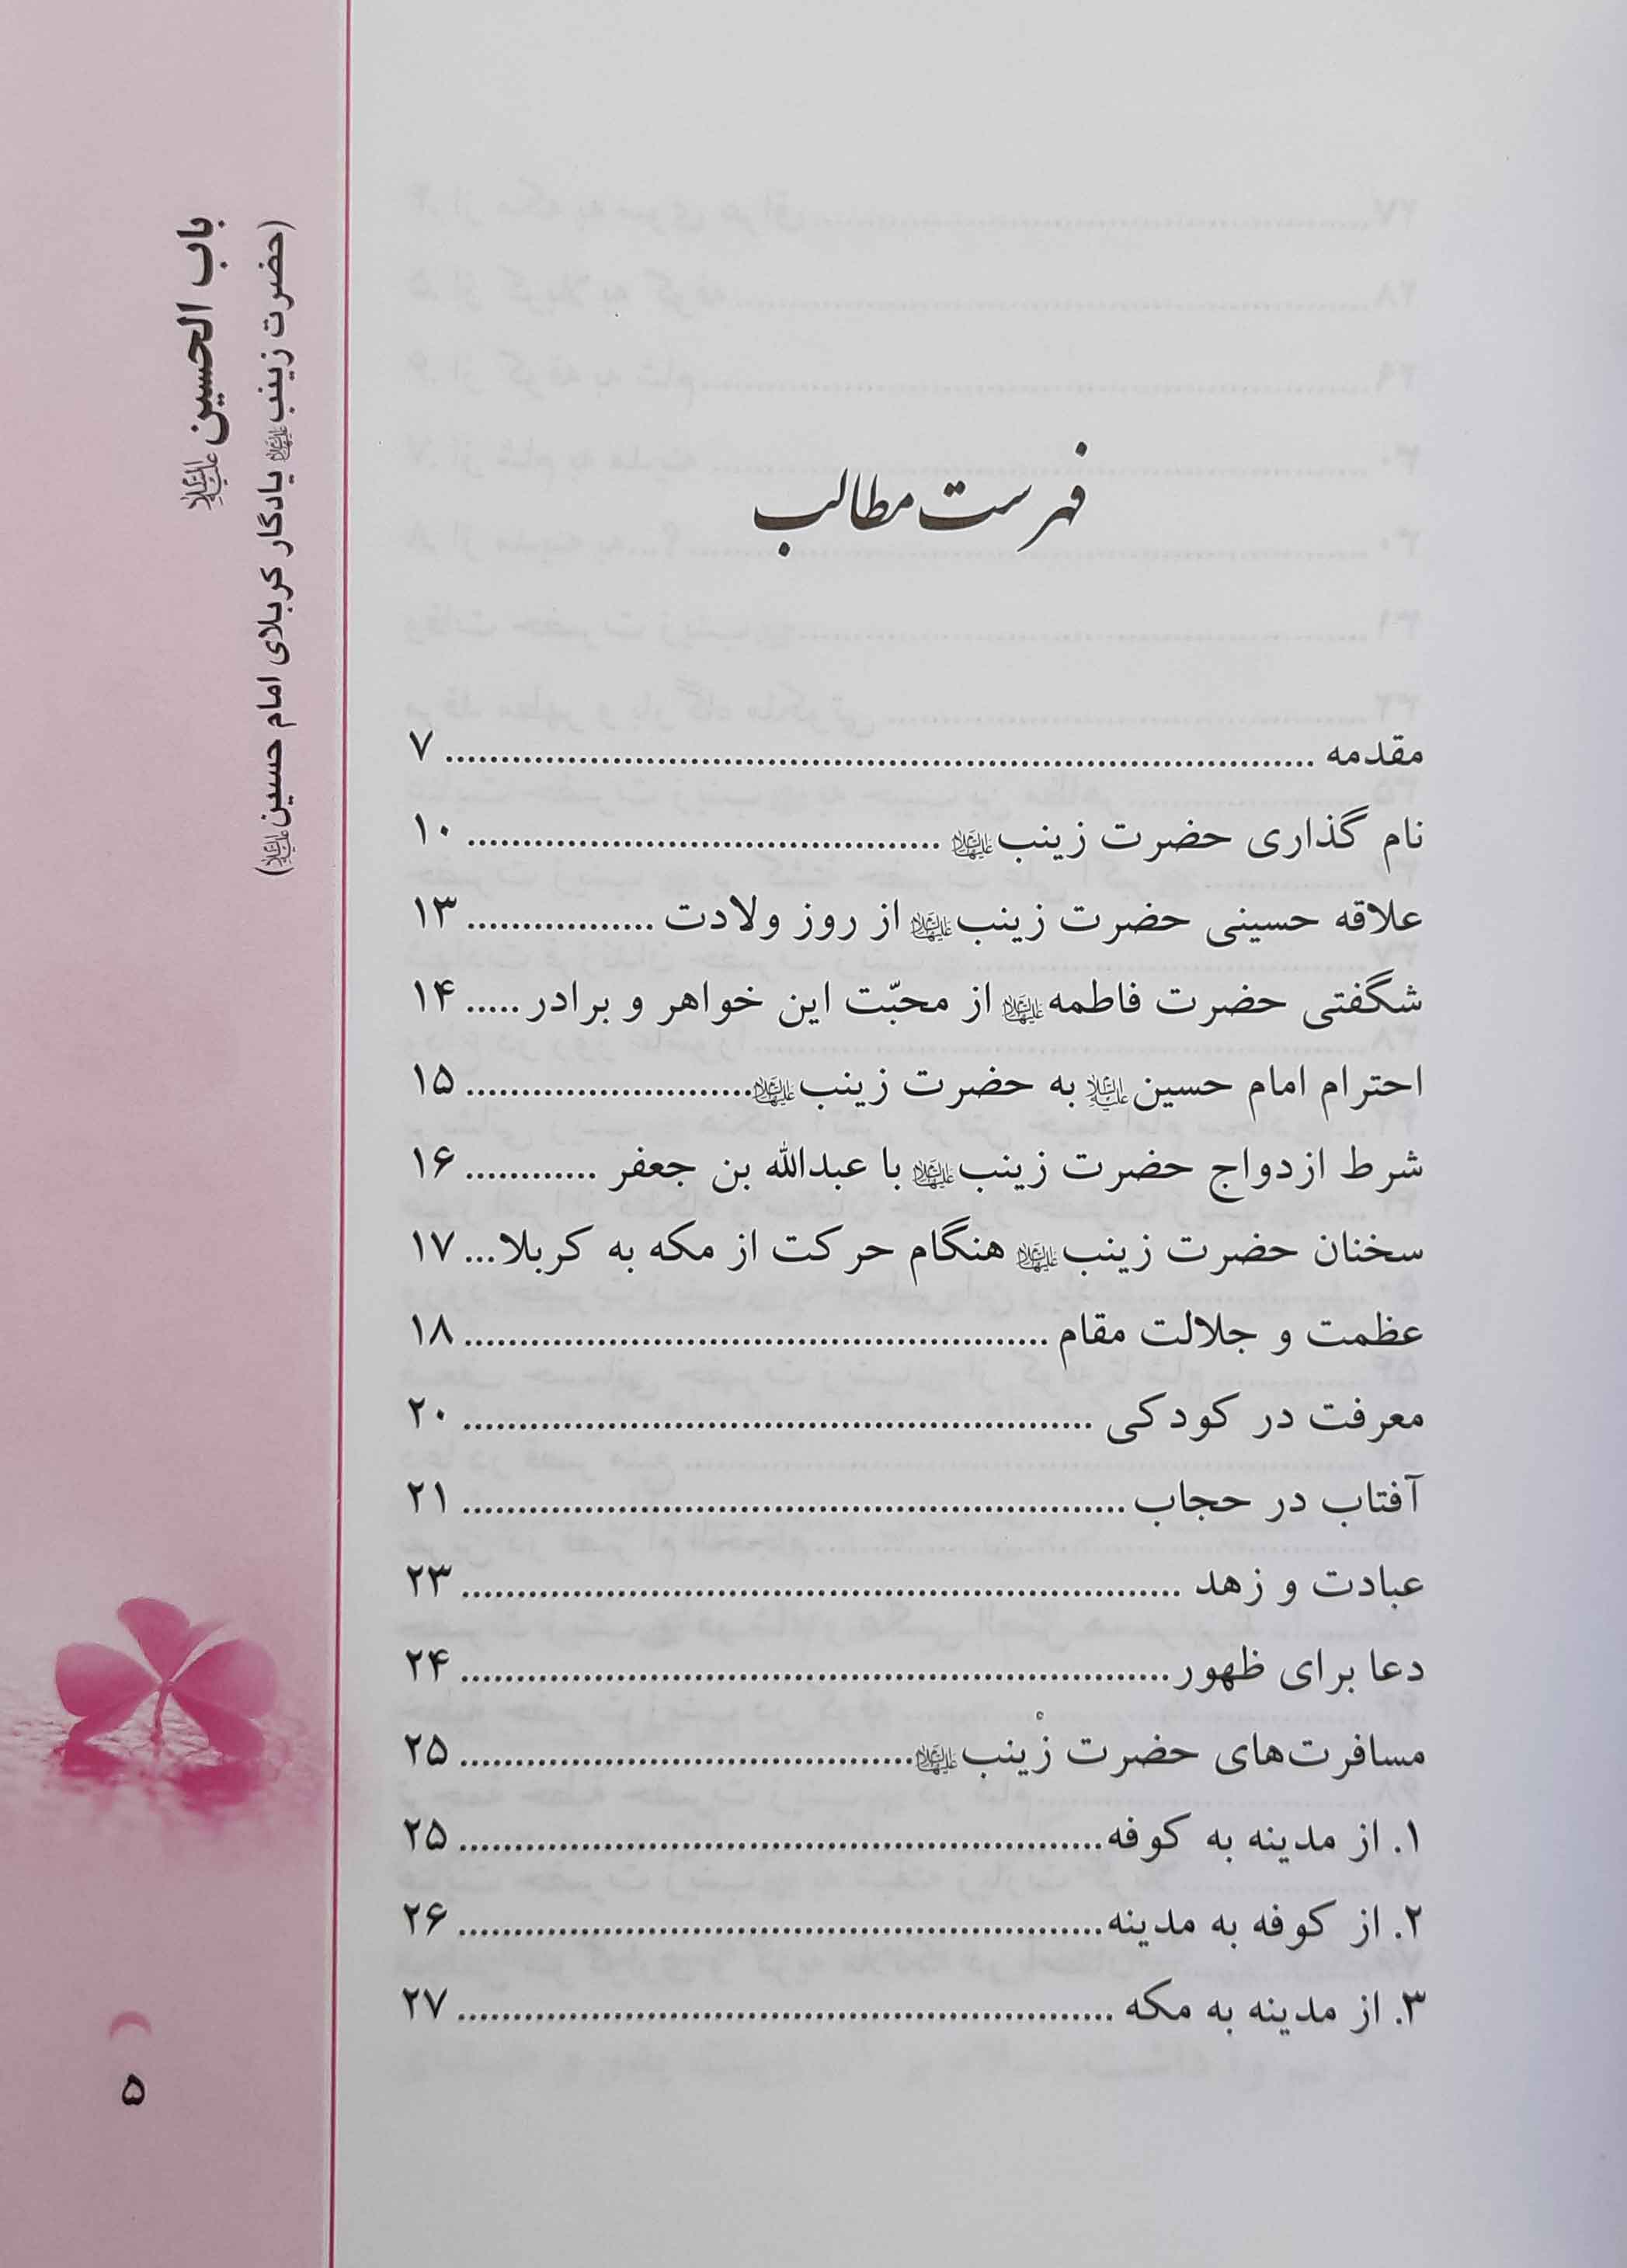 باب الحسین علیه‌السلام
(حضرت زینب علیهاالسلام یادگار کربلای امام حسین علیه‌السلام)
فهرست مطالب
مقدمه ........ ۷
نام گذاری حضرت زینب علیهاالسلام ........ ۱۰
علاقه حسینی حضرت زینب علیهاالسلام از روز ولادت ........ ۱۳
شگفتی حضرت فاطمه علیهاالسلام از محبّت این خواهر و برادر ..... ۱۴
احترام امام حسین علیه‌السلام به حضرت زینب علیهاالسلام ........ ۱۵
شرط ازدواج حضرت زینب علیهاالسلام با عبدالله بن جعفر ........ ۱۶
سخنان حضرت زینب علیهاالسلام هنگام حرکت از مکه به کربلا... ۱۷
عظمت و جلالت مقام ........ ۱۸
معرفت در کودکی ........ ۲۰
آفتاب در حجاب ........ ۲۱
عبادت و زهد ........ ۲۳
دعا برای ظهور ........ ۲۴
مسافرت‌های حضرت زینب علیهاالسلام ........ ۲۵
۱. از مدینه به کوفه ........ ۲۵
۲. از کوفه به مدینه ........ ۲۶
۳. از مدینه به مکه ........ ۲۷
۵